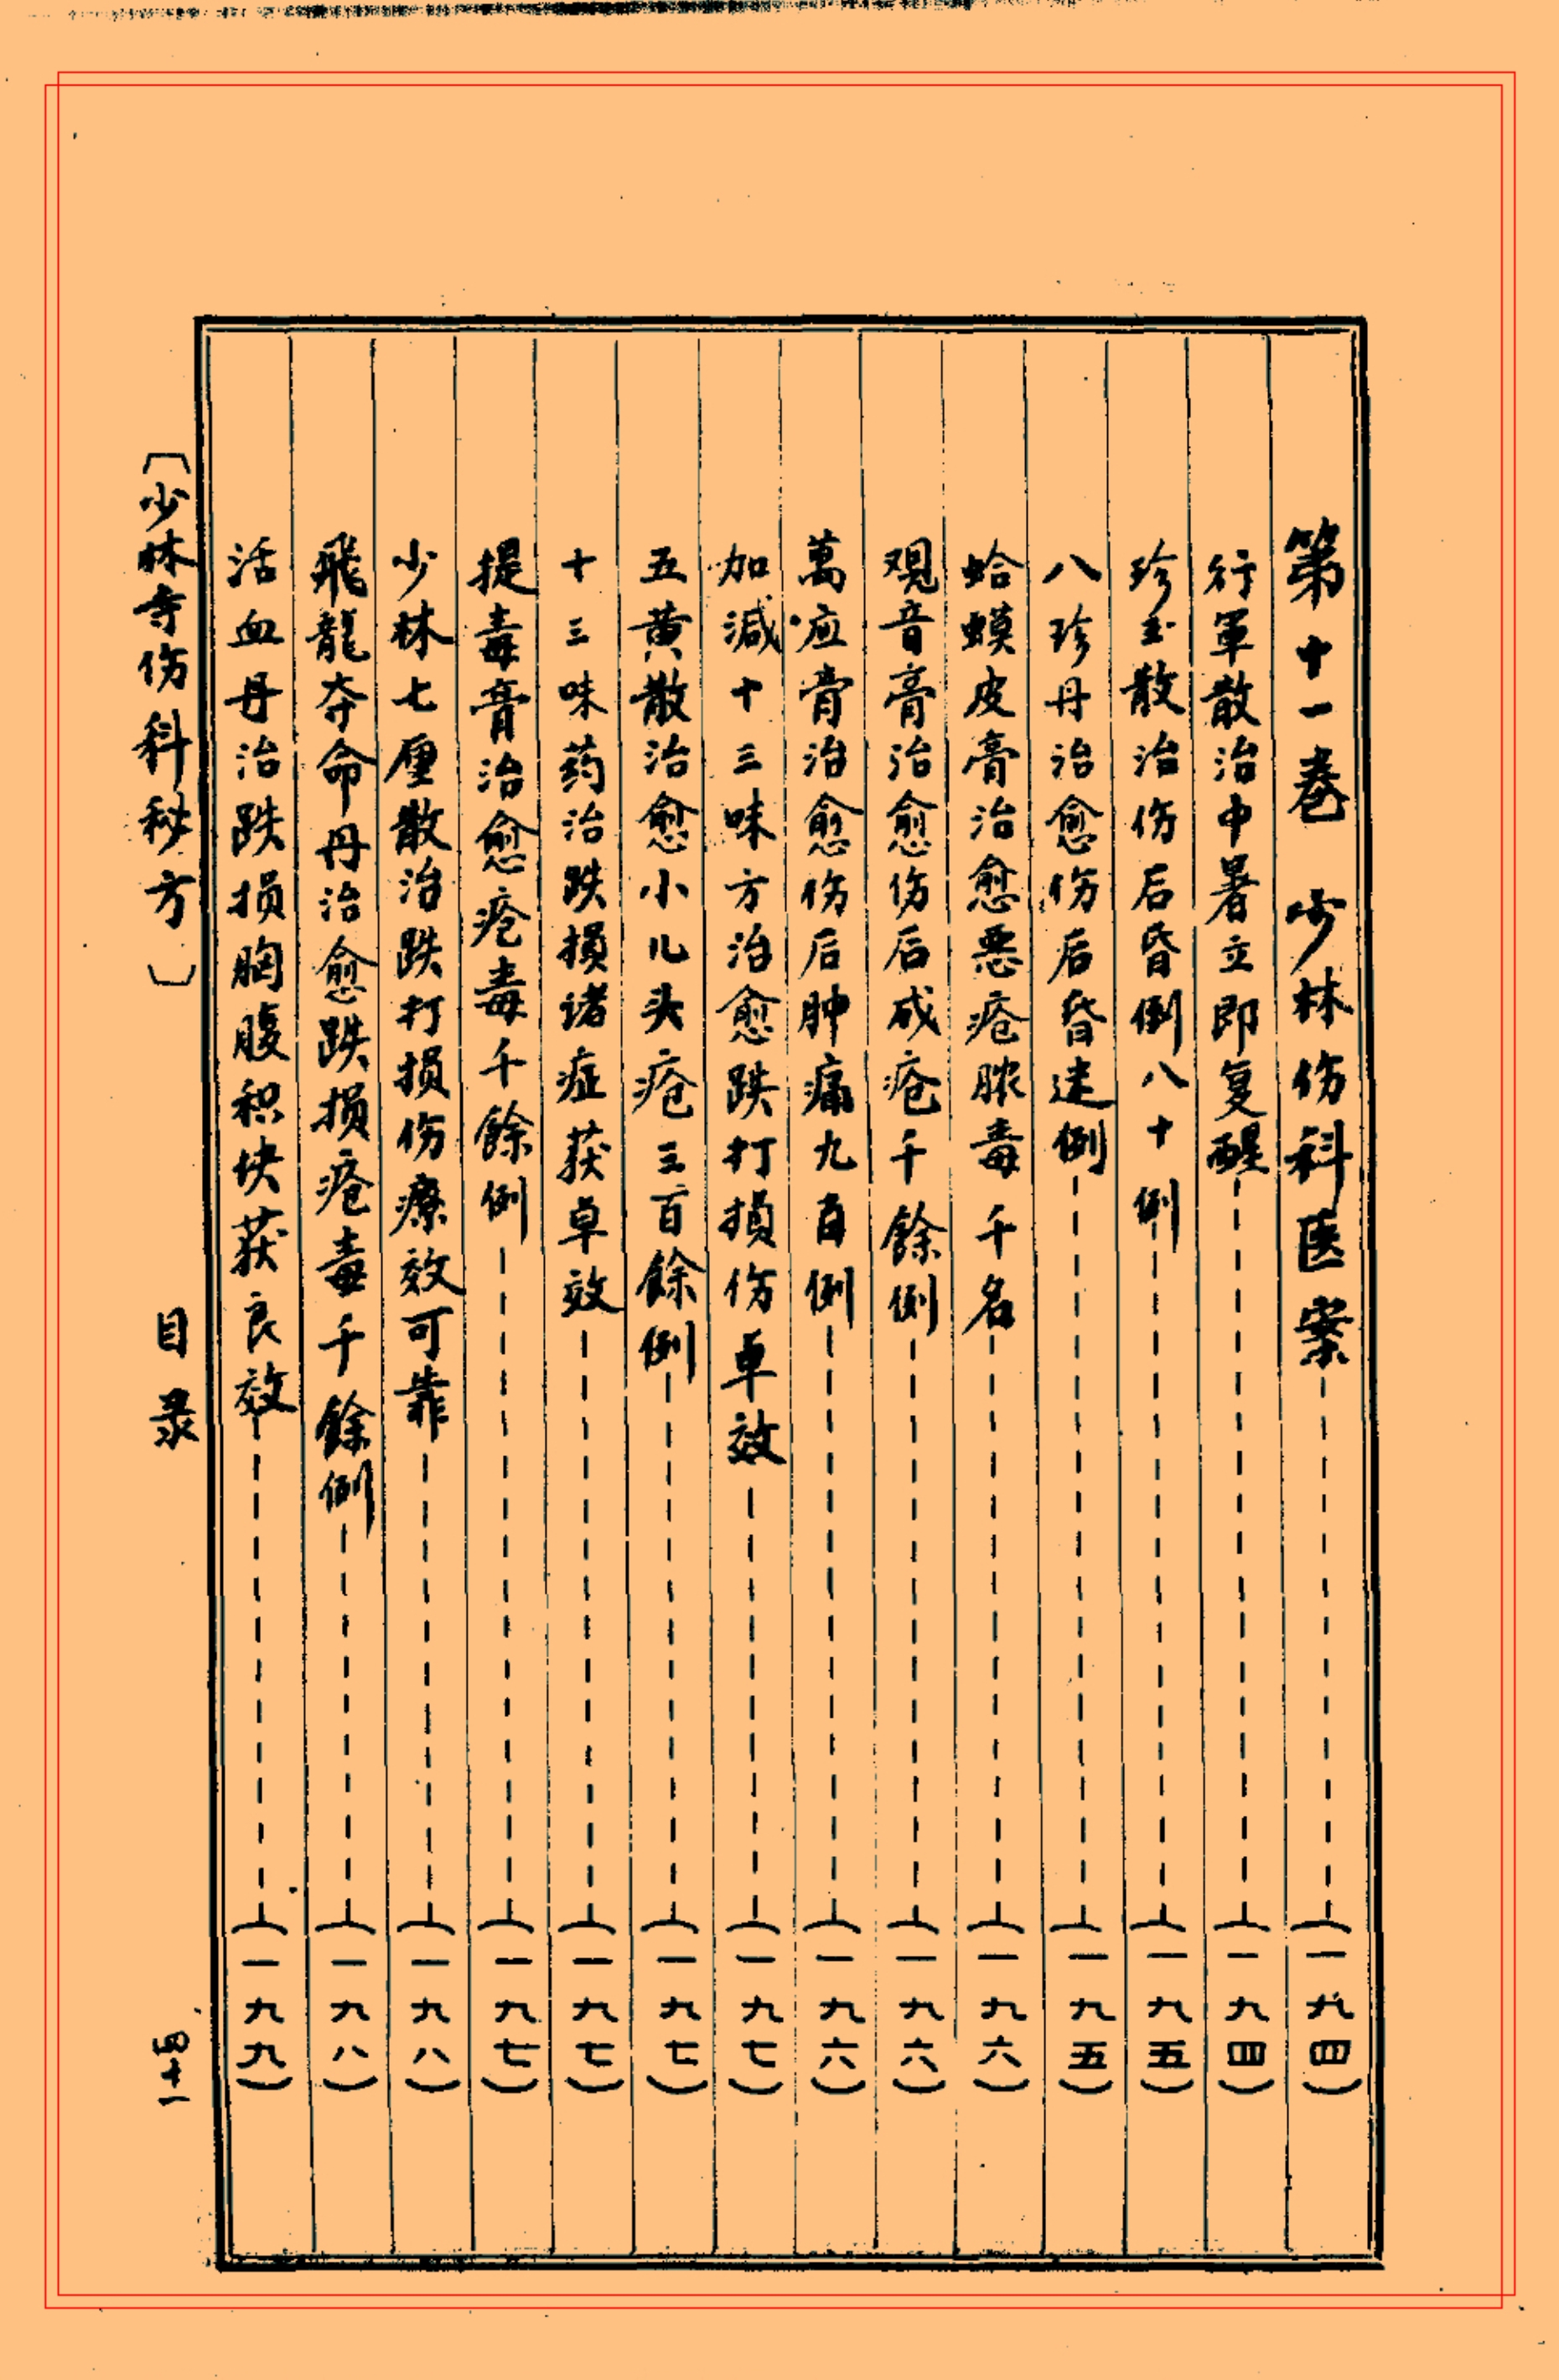 第十一卷 少林伤科医案------(一九四)
行军散治中暑立即复醒------(一九四)
珍玉散治伤后昏倒八十例------(一九五)
八珍丹治愈伤后昏迷例------(一九五)
蛤蟆皮膏治愈恶疮脓毒千名------(一九六)
观音膏治愈伤后成疮千餘例------(一九六)
萬应膏治愈伤后肿痛九百例------(一九六)
加減十三味方治愈跌打損伤卓效------(一九七)
五黄散治愈小儿头疮三百餘例------(一九七)
十三味药治跌損诸症获卓效------(一九七)
提毒膏治愈疮毒千餘例------(一九七)
少林七厘散治跌打损伤療效可靠------(一九八)
飛龍夺命丹治愈跌损疮毒千餘例------(一九八)
活血丹治跌损胸腹积块获良效------(一九九)
〔少林寺伤科秘方〕 目录 四十一